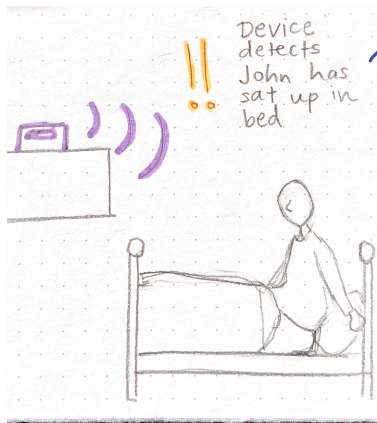 !!
Device
detects
John has
sat up in
bed